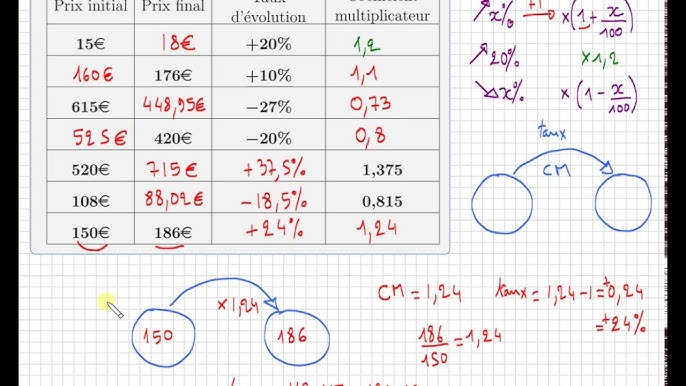 Prix initial Prix final d'évolution multiplicateur
15€ 18€ +20% 1,2
160€ 176€ +10% 1,1
615€ 448,95€ −27% 0,73
525€ 420€ −20% 0,8
520€ 715€ +37,5% 1,375
108€ 88,02€ −18,5% 0,815
150€ 186€ +24% 1,24
x% +1 ×(1+x/100)
20% ×1,2
x% ×(1−x/100)
taux
CM
150 ×1,24 186
CM = 1,24
186/150 = 1,24
taux = 1,24−1=+0,24
=+24%